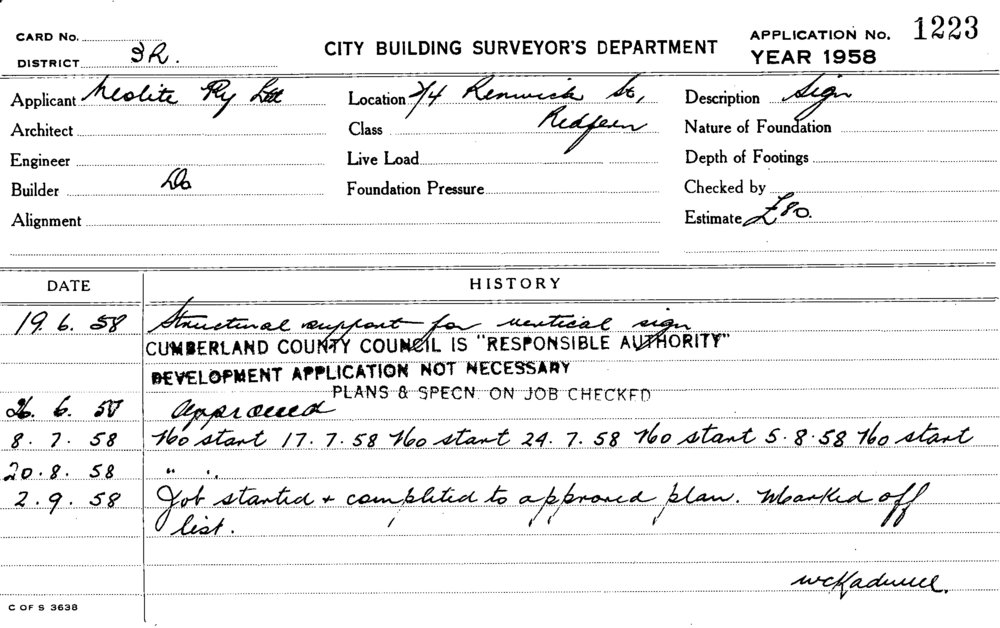 CARD No.
DISTRICT 3R.
CITY BUILDING SURVEYOR'S DEPARTMENT
APPLICATION No. 1223
YEAR 1958
Applicant Neolite Pty Ltd
Location 2/4 Renwick St,
Redfern
Description Sign
Architect
Class
Nature of Foundation
Engineer
Live Load
Depth of Footings
Builder Do
Foundation Pressure
Checked by
Alignment
Estimate £80.
DATE
HISTORY
19. 6. 58 Structural support for vertical sign
CUMBERLAND COUNTY COUNCIL IS "RESPONSIBLE AUTHORITY"
DEVELOPMENT APPLICATION NOT NECESSARY
PLANS & SPECN. ON JOB CHECKED
26. 6. 58 Approved
8. 7. 58 No start 17. 7. 58 No start 24. 7. 58 No start 5. 8. 58 No start
20. 8. 58 " .
2. 9. 58 Job started + completed to approved plan. Marked off
list.
C OF S 3638